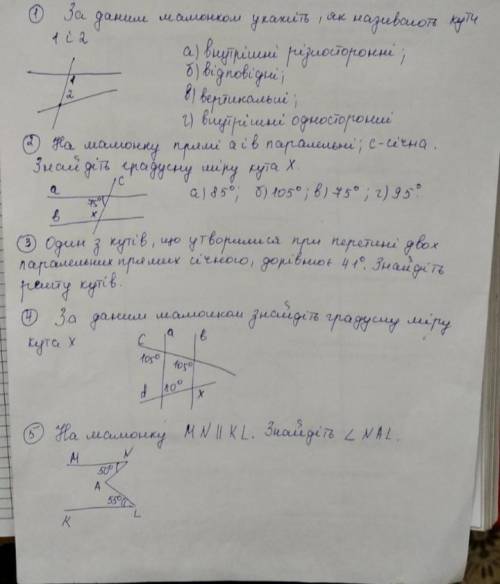 ① За даним малюнком укажіть, як називають кути
1 і 2
а) внутрішні різносторонні;
1
2
б) відповідні;
в) вертикальні;
г) внутрішні односторонні
② На малюнку прямі а і в паралельні; с-січна.
Знайдіть градусну міру кута Х.
а
с
75°
в
х
а) 85°; б) 105°; в) 75°; г) 95°
③ Один з кутів, що утворилися при перетині двох
паралельних прямих січного, дорівнює 41°. Знайдіть
решту кутів.
④ За даним малюнком знайдіть градусну міру
кута х
с
а
в
105°
105°
d
80°
х
⑤ На малюнку MN || KL. Знайдіть ∠ NAL.
M
N
50°
A
55°
K
L